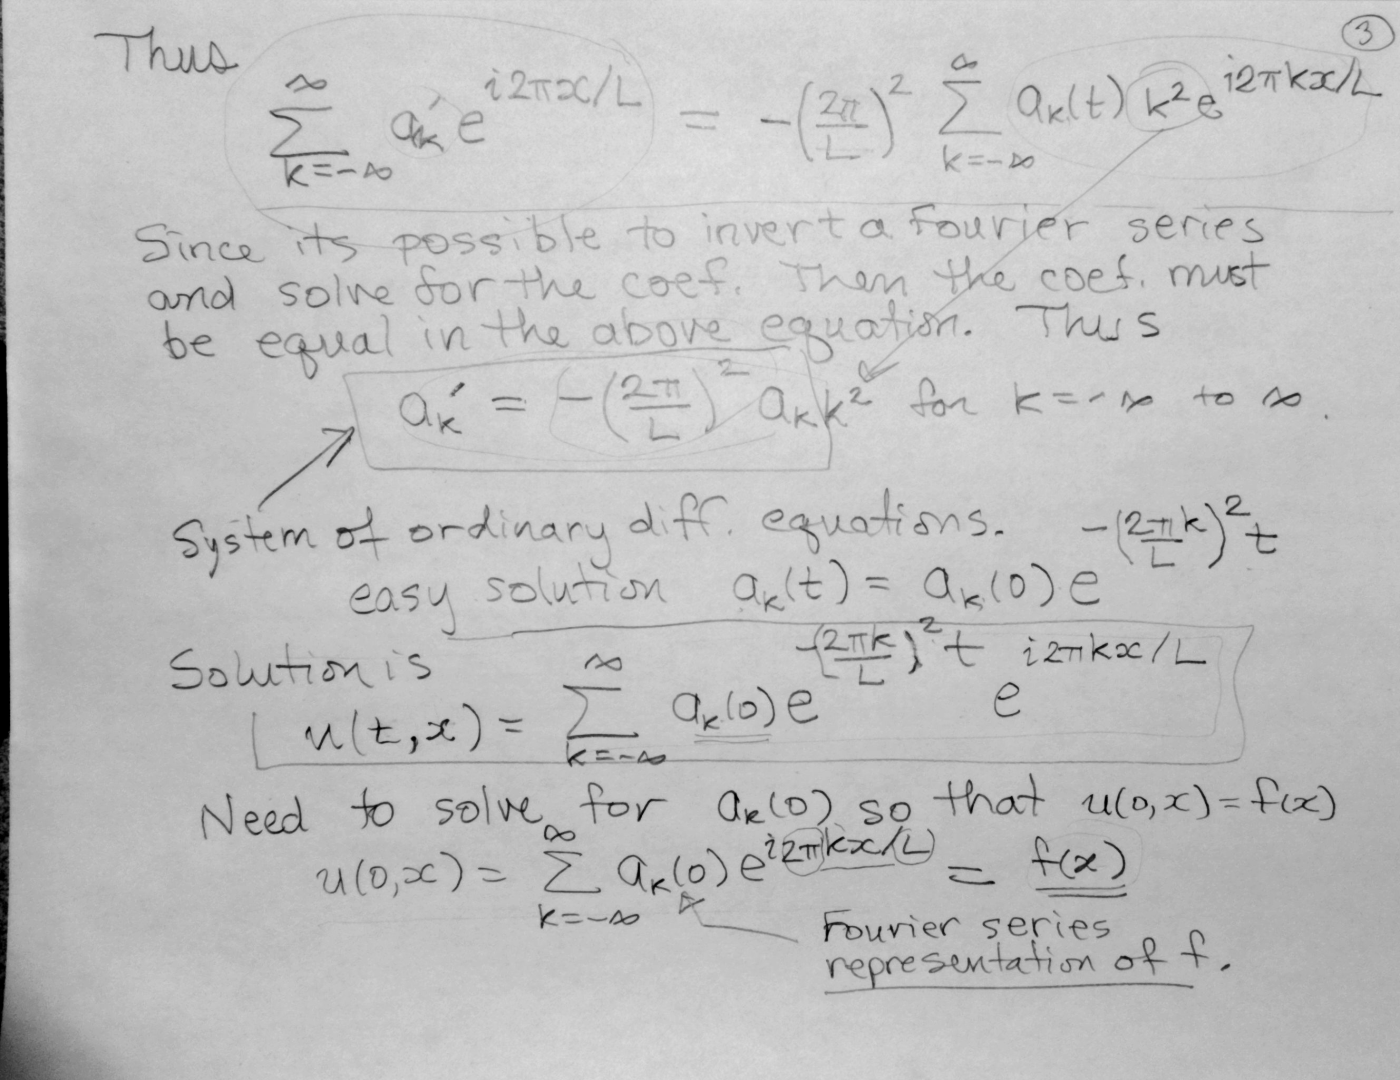 ③
Thus
∞ ∑ k=-∞ aₖ′ e^{i2πx/L} = -(2π/L)² ∞ ∑ k=-∞ aₖ(t) k² e^{i2πkx/L}
Since its possible to invert a Fourier series
and solve for the coef. Then the coef. must
be equal in the above equation. Thus
aₖ′ = -(2π/L)² aₖ k² for k=-∞ to ∞.
System of ordinary diff. equations.
easy solution aₖ(t) = aₖ(0) e^{-(2πk/L)² t}
Solution is
u(t,x) = ∞ ∑ k=-∞ aₖ(0) e^{-(2πk/L)² t} e^{i2πkx/L}
Need to solve for aₖ(0) so that u(0,x)=f(x)
u(0,x) = ∞ ∑ k=-∞ aₖ(0) e^{i2πkx/L} = f(x)
Fourier series
representation of f.